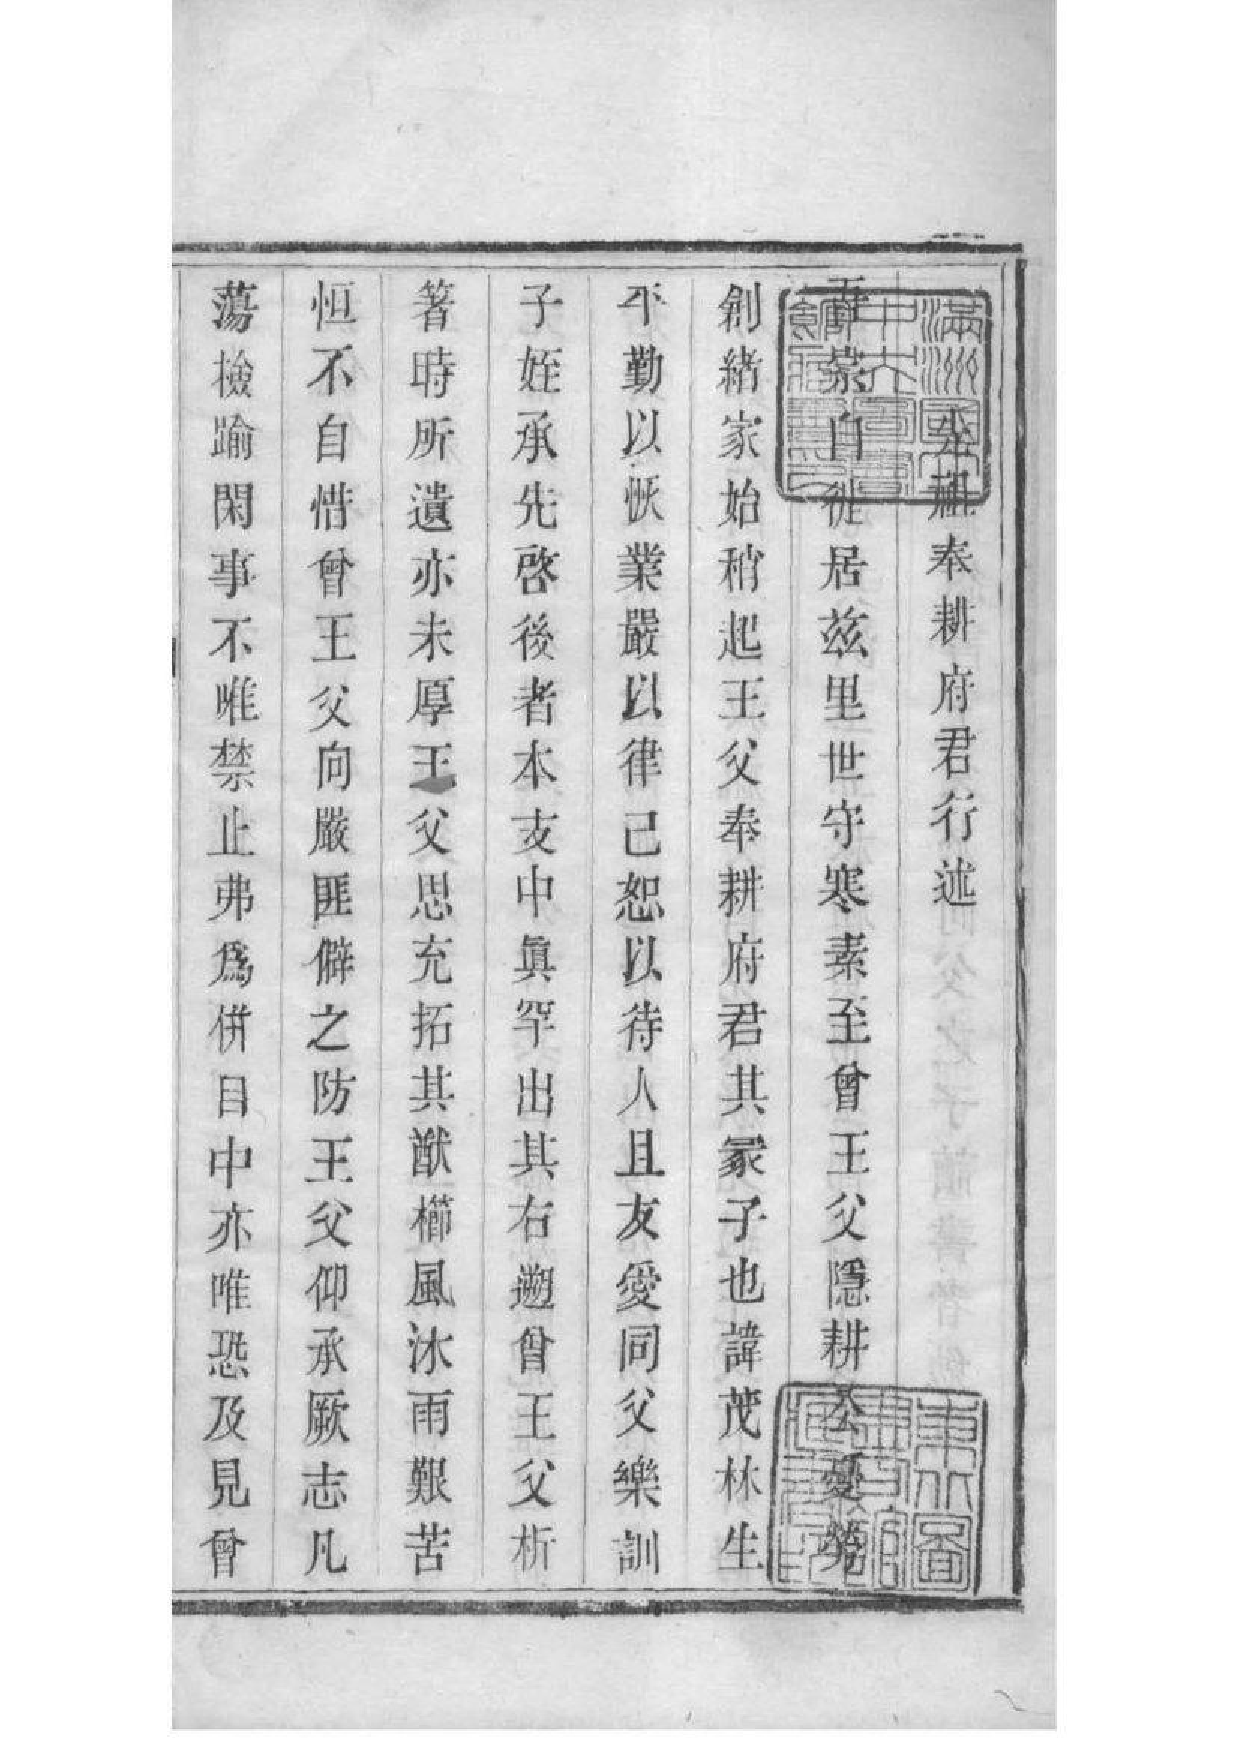 先祖奉耕府君行述
吾宗自徙居茲里世守寒素至曾王父隱耕公憂勞
創緒家始稍起王父奉耕府君其冢子也諱茂林生
平勤以恢業嚴以律己恕以待人且友愛同父樂訓
子姪承先啓後者本支中眞罕出其右遡曾王父析
箸時所遺亦未厚王父思充拓其猷櫛風沐雨艱苦
恒不自惜曾王父向嚴匪僻之防王父仰承厥志凡
蕩檢踰閑事不唯禁止弗爲併目中亦唯恐及見曾
滿洲國
中央圖書
館
東北圖
書館